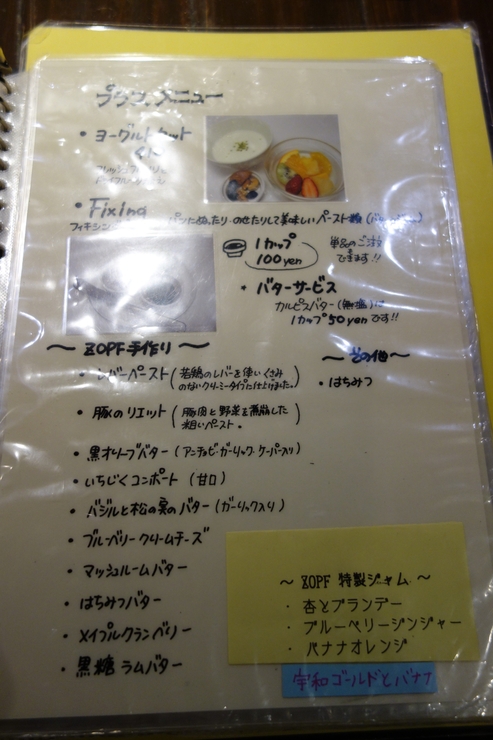 プラス メニュー
・ヨーグルトセット
・Fixing パンにぬったり・のせたりして美味しいペースト類
1カップ 100yen
単品のご注文できます!!
・バターサービス
カルピスバター(無塩)は
1カップ50yenです!!
〜ZOPF手作り〜
・レバーペースト(若鶏のレバーを使いくさみ
のないクリーミータイプに仕上げました。)
・豚のリエット(豚肉と野菜を煮崩した
粗いペースト。)
・黒オリーブバター(アンチョビ・ガーリック・ケーパー入り)
・いちじくコンポート(甘口)
・バジルと松の実のバター(ガーリック入り)
・ブルーベリークリームチーズ
・マッシュルームバター
・はちみつバター
・メイプルクランベリー
・黒糖ラムバター
〜その他〜
・はちみつ
〜 ZOPF 特製ジャム 〜
・杏とブランデー
・ブルーベリージンジャー
・バナナオレンジ
宇和ゴールドとバナナ